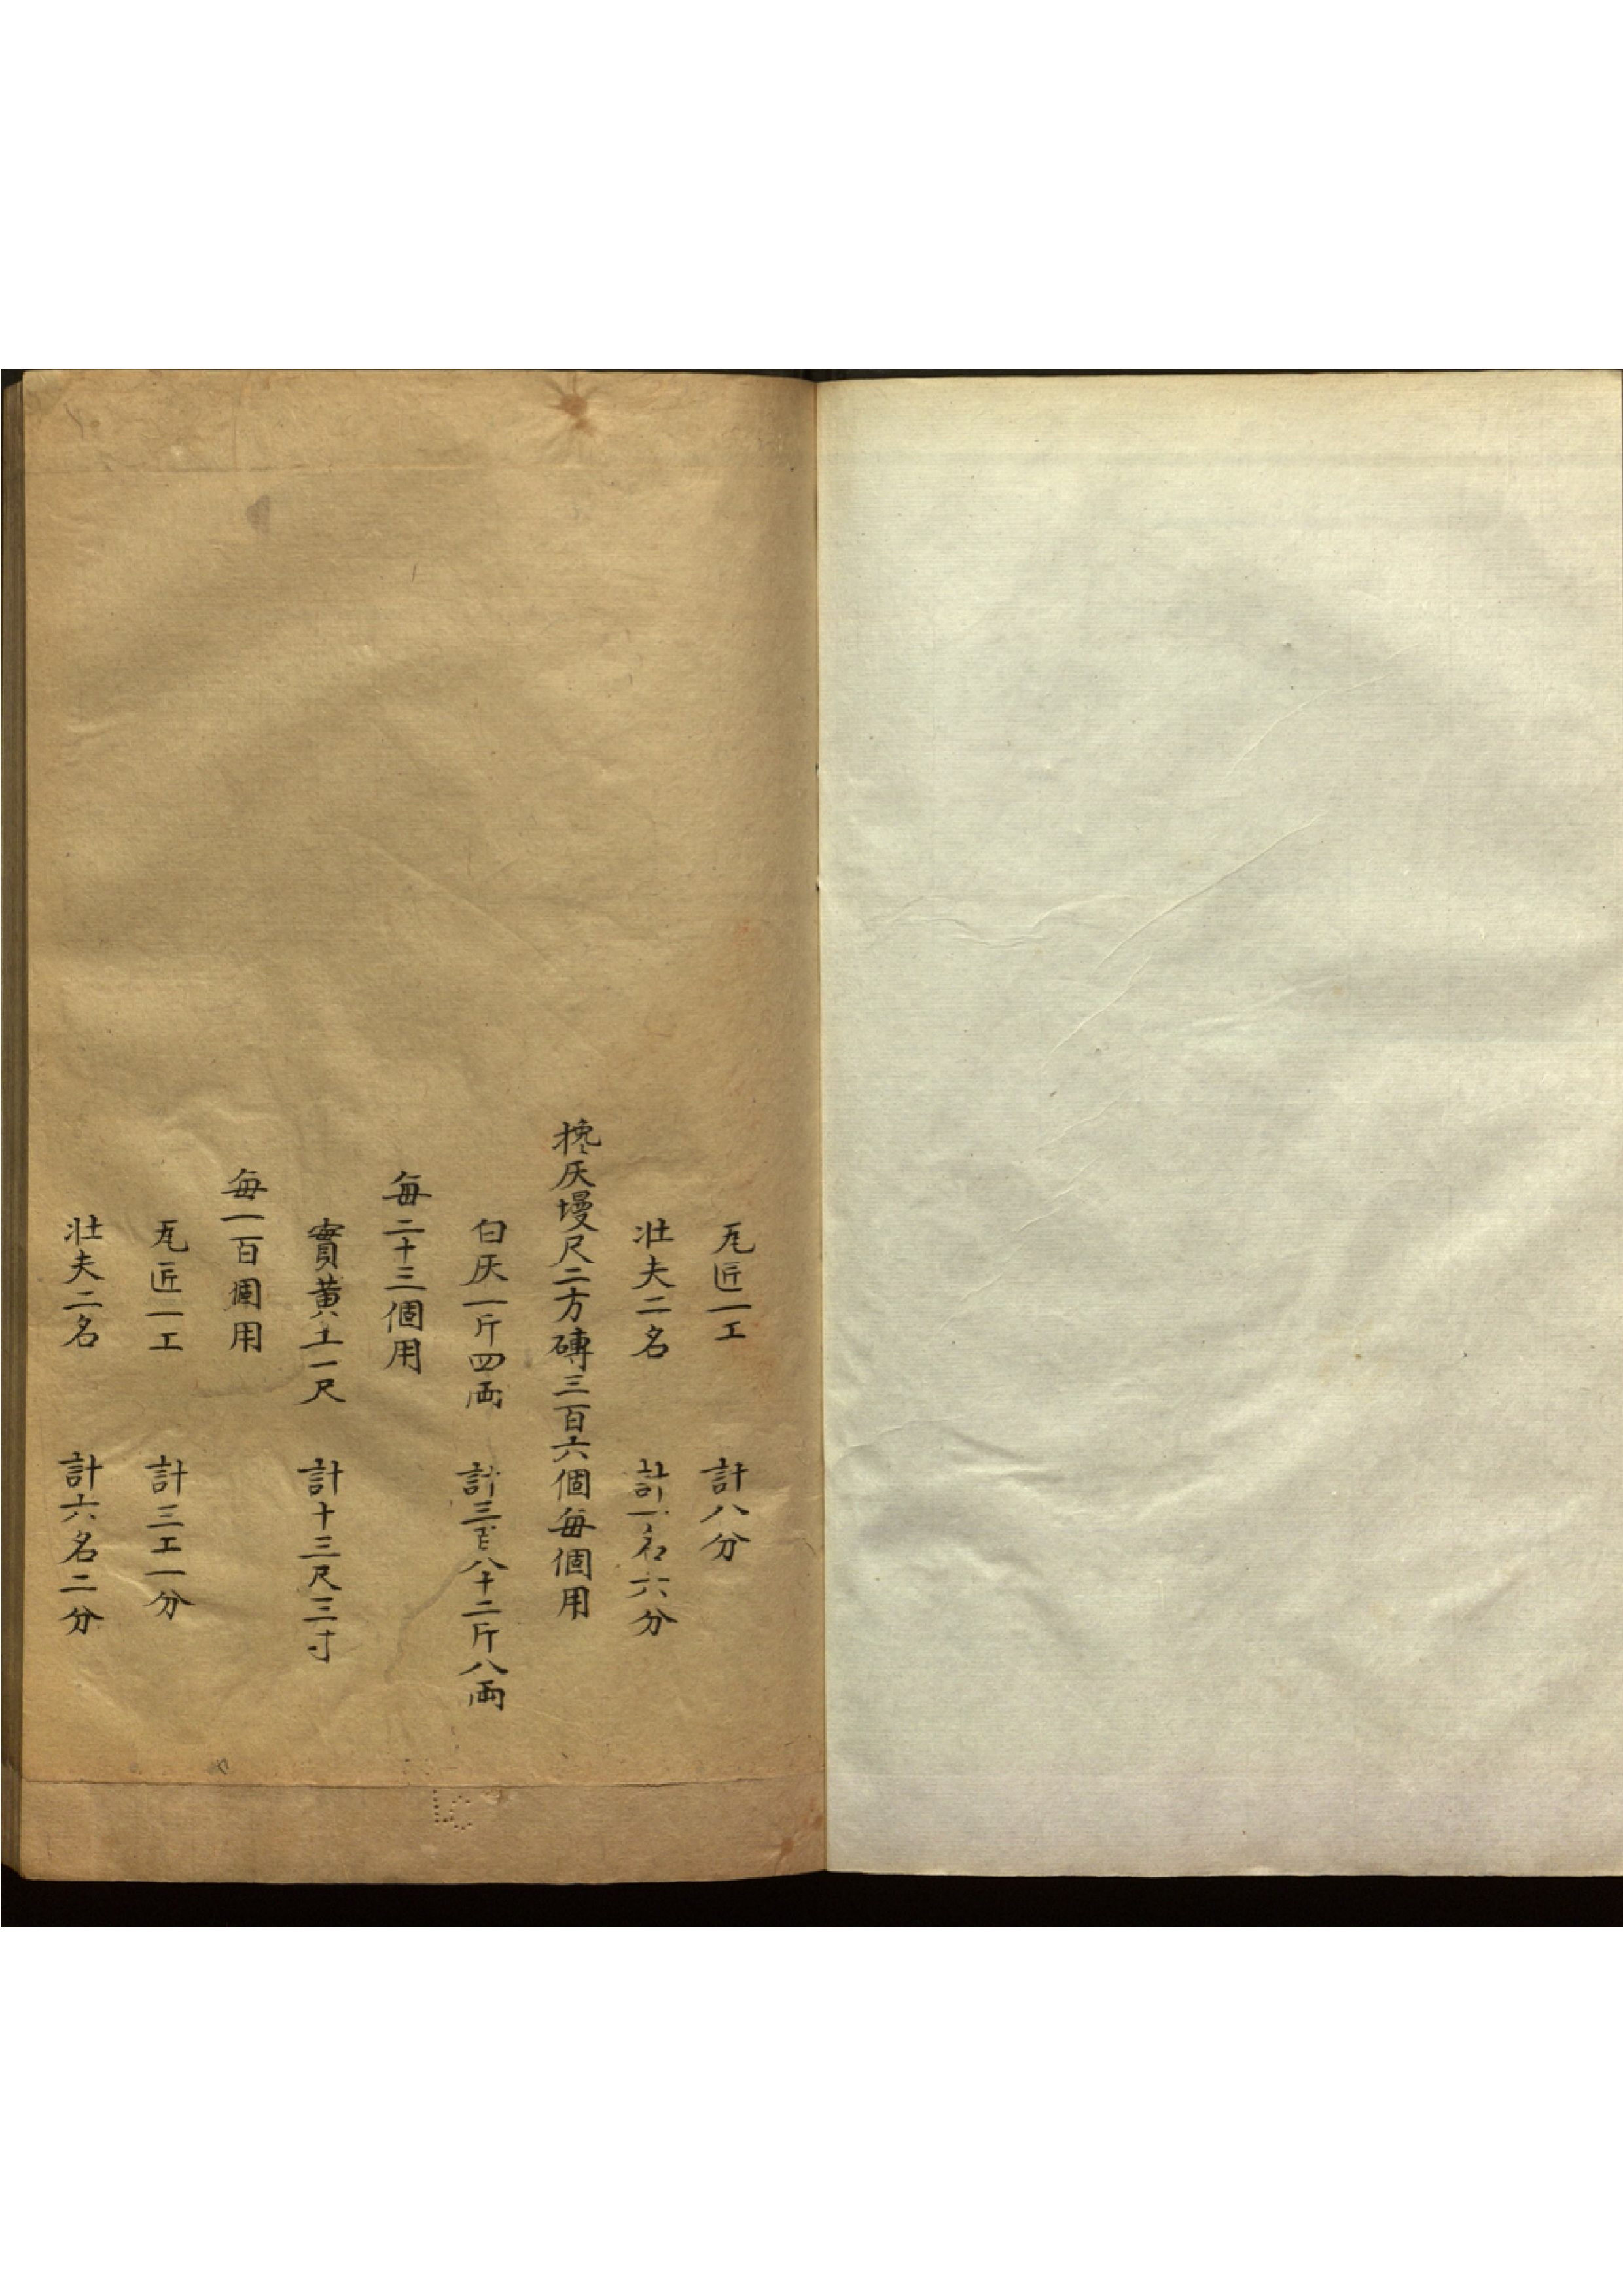 瓦匠一工　計八分
壮夫二名　計一名六分
搀灰墁尺二方磚三百六個每個用
白灰一斤四両　計三百八十二斤八両
每二十三個用
實黄土一尺　計十三尺三寸
每一百個用
瓦匠一工　計三工一分
壮夫二名　計六名二分